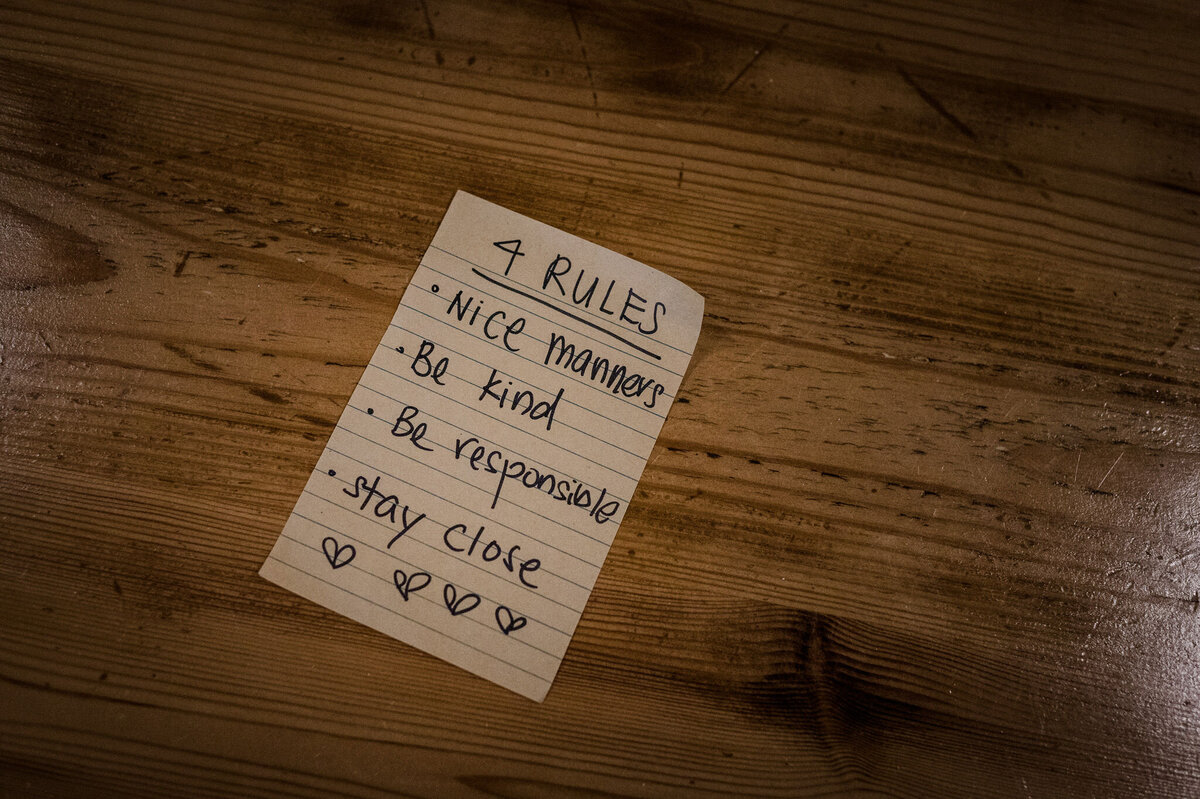 4 RULES
• Nice manners
• Be kind
• Be responsible
• stay close
♡ ♡ ♡ ♡